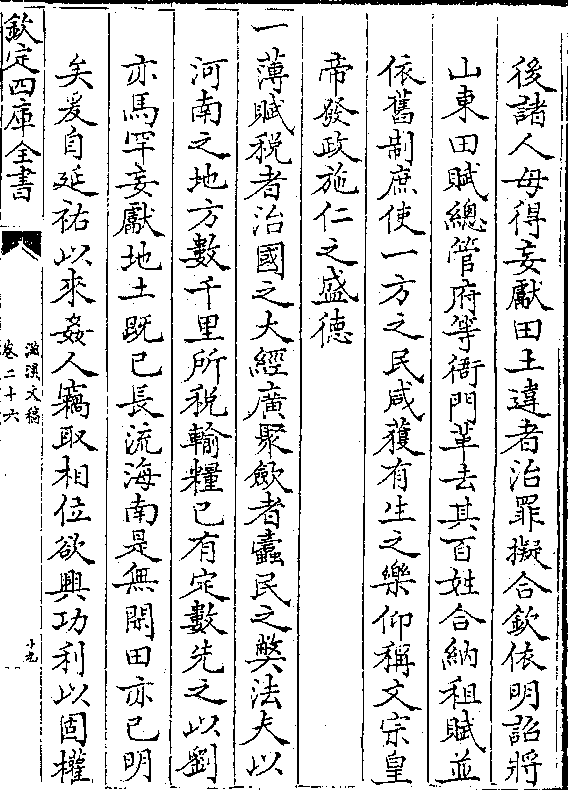 後諸人毋得妄獻田土違者治罪擬合欽依明詔將
山東田賦總管府等衙門革去其百姓合納租賦並
依舊制庶使一方之民咸獲有生之樂仰稱文宗皇
帝發政施仁之盛德
一薄賦稅者治國之大經廣聚歛者蠹民之獘法夫以
河南之地方數千里所稅輸糧已有定數先之以劉
亦馬罕妄獻地土既已長流海南是無閑田亦已明
矣爰自延祐以來姦人竊取相位欲興功利以固權
欽定四庫全書
滋溪文稿
卷二十六
十九